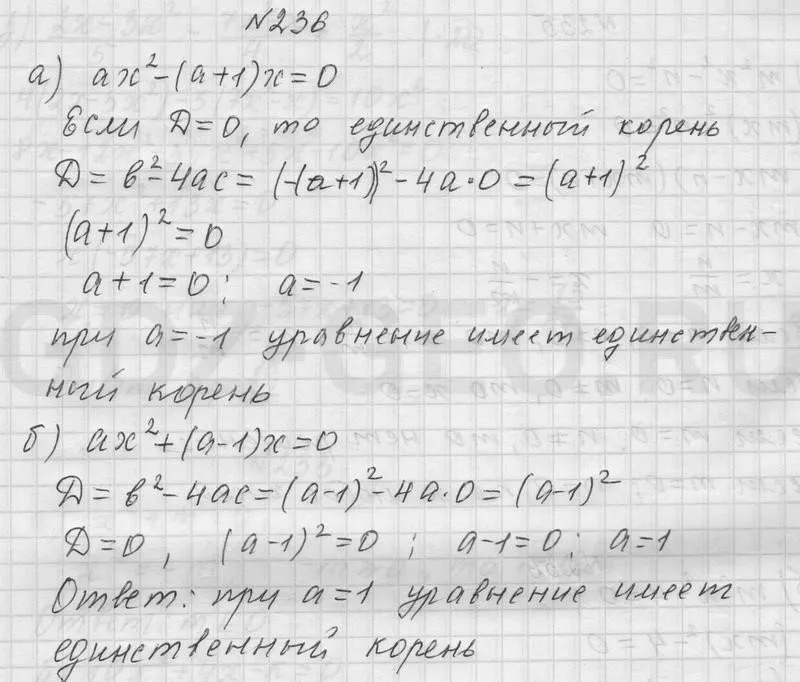 №236
а) ax²-(a+1)x=0
Если Д=0, то единственный корень
Д= в²-4ас= (-(a+1))²-4a·0=(a+1)²
(a+1)²=0
a+1=0; a=-1
при а=-1 уравнение имеет единствен-
ный корень
б) ax²+(a-1)x=0
Д= в²-4ас=(a-1)²-4a·0=(a-1)²
Д=0, (a-1)²=0; a-1=0; a=1
Ответ: при а=1 уравнение имеет
единственный корень